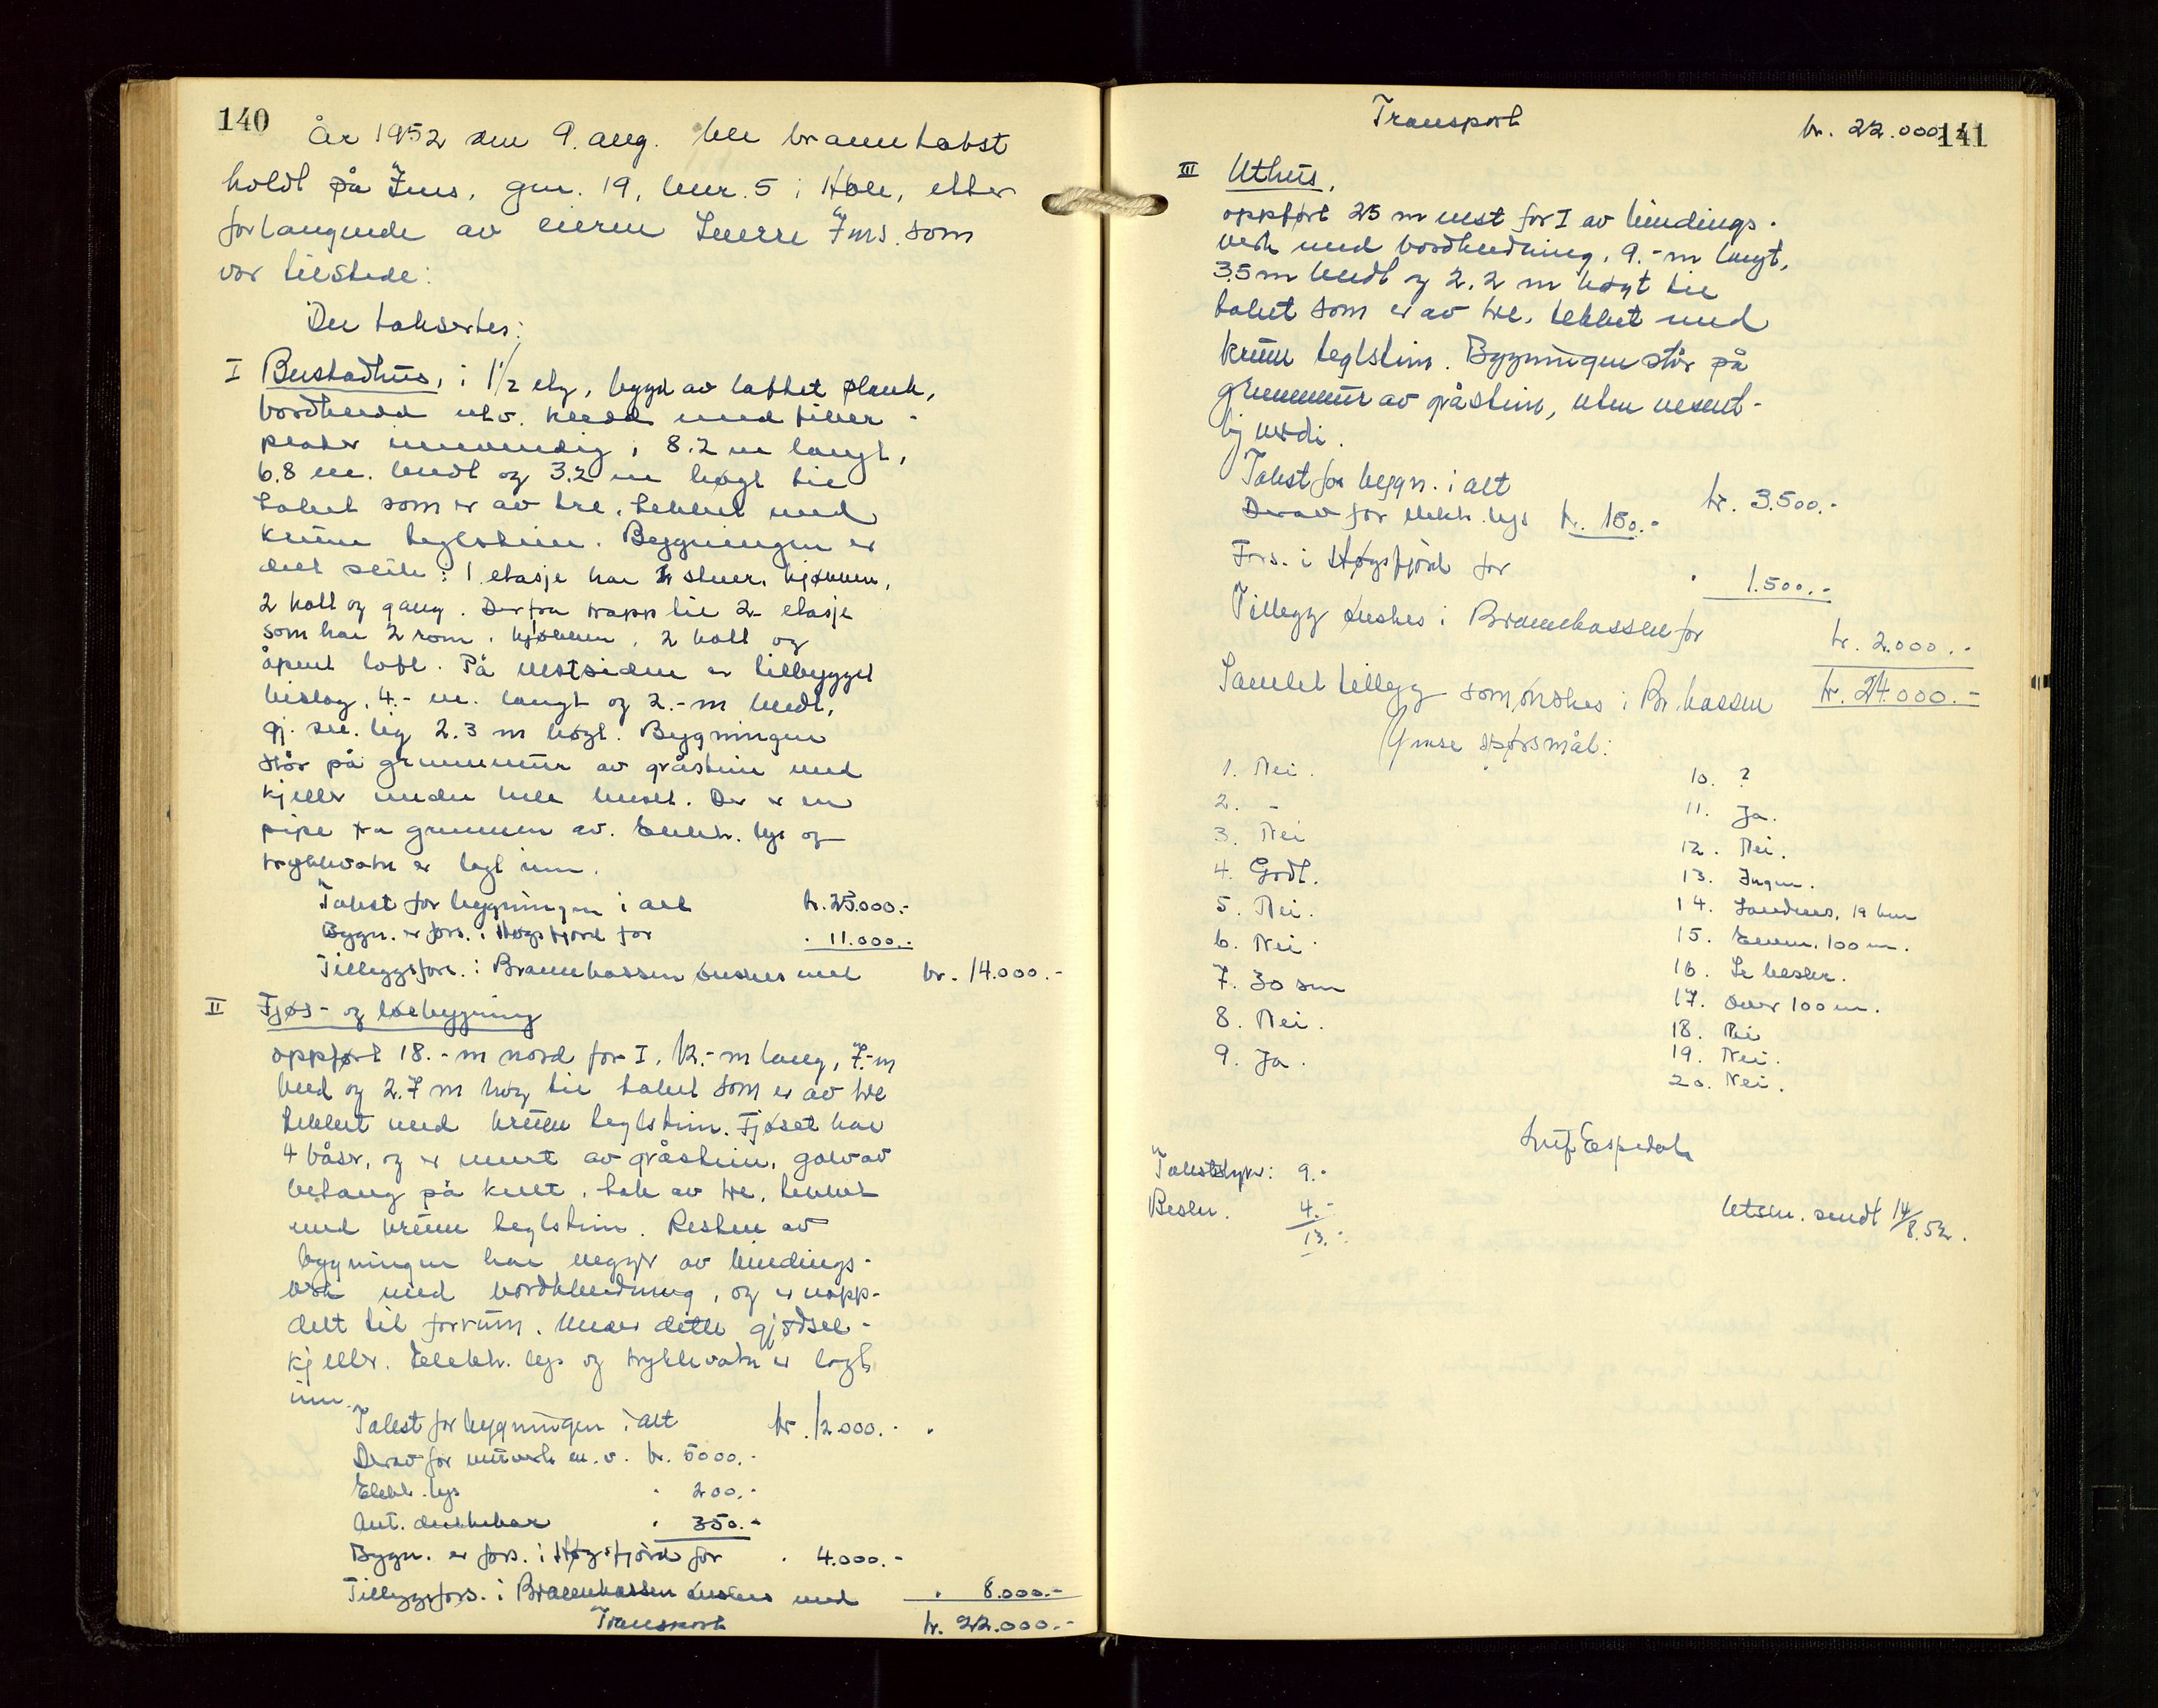 140
År 1952 den 9. aug. ble branntakst
holdt på Ims, gnr. 19, bnr. 5 i Hole, etter
forlangende av eieren Sverre Ims. som
var tilstede:
Der taksertes:
I Bustadhus, i 1½ etg, bygd av laftet plank,
bordkledd utv. kledd med fiber-
plater innvendig, 8.2 m langt,
6.8 m. bredt og 3.2 m høgt til
taket som er av tre, tekket med
krum teglstein. Bygningen er
delt slik: 1. etasje har stuer, kjøkken,
2 kott og gang. Derfra trapp til 2. etasje
som har 2 rom, kjøkken, 2 kott og
åpent loft. På vestsiden er tilbygget
bislag, 4.- m. langt og 2.-m bredt,
gj. snl. lig 2.3 m høgt. Bygningen
står på grunnmur av gråstein med
kjeller under hele huset. Der er en
pipe fra grunnen av. Elektr. lys og
trykkvatn er lagt inn.
Takst for bygningen i alt kr. 25.000.-
Bygn. er fors. i Høgsfjord for " 11.000.-
Tilleggsfors. i Brannkassen ønskes med kr. 14.000.-
II Fjøs- og løebygning
oppført 18.-m nord for I, 12.-m lang, 7.-m
bred og 2.7 m høg til taket som er av tre
tekket med krum teglstein. Fjøset har
4 båser, og er murt av gråstein, golv av
betong på kult, tak av tre, tekket
med krum teglstein. Resten av
bygningen har vegger av bindings-
verk med bordkledning, og er opp-
delt til forrum. Under dette gjødsel-
kjeller. Elektr. lys og trykkvatn er lagt
inn.
Takst for bygningen i alt kr. 12.000.-
Derav for murverk m.v. kr. 5000.-
Elektr. lys " 200.-
Aut. drikkekar " 350.-
Bygn. er fors. i Høgsfjord for " 4.000.-
Tilleggsfors. i Brannkassen ønskes med " 8.000.-
Transport kr. 22.000.-
Transport kr. 22.000.-
141
III Uthus,
oppført 25 m vest for I av bindings-
verk med bordkledning, 9.-m langt,
3.5 m bredt og 2.2 m høgt til
taket som er av tre, tekket med
krum teglstein. Bygningen står på
grunnmur av gråstein, uten vesent-
lig verdi.
Takst for bygn. i alt kr. 3.500.-
Derav for elektr. lys kr. 150.-
Fors. i Høgsfjord for " 1.500.-
Tillegg ønskes i Brannkassen for kr. 2.000.-
Samlet tillegg som ønskes i Br.kassen kr. 24.000.-
Ymse spørsmål:
1. Nei.
2. -
3. Nei
4. Godt.
5. Nei.
6. Nei.
7. 30 sm
8. Nei.
9. Ja.
10. ?
11. Ja.
12. Nei.
13. Ingen.
14. Sandnes, 19 km
15. 100 m.
16. Se beskr.
17. Over 100 m.
18. Nei
19. Nei.
20. Nei.
Leif Espedal
Takstshyre: 9.-
Beskr. 4.-
13.-
Utskr. sendt 14/8.52.